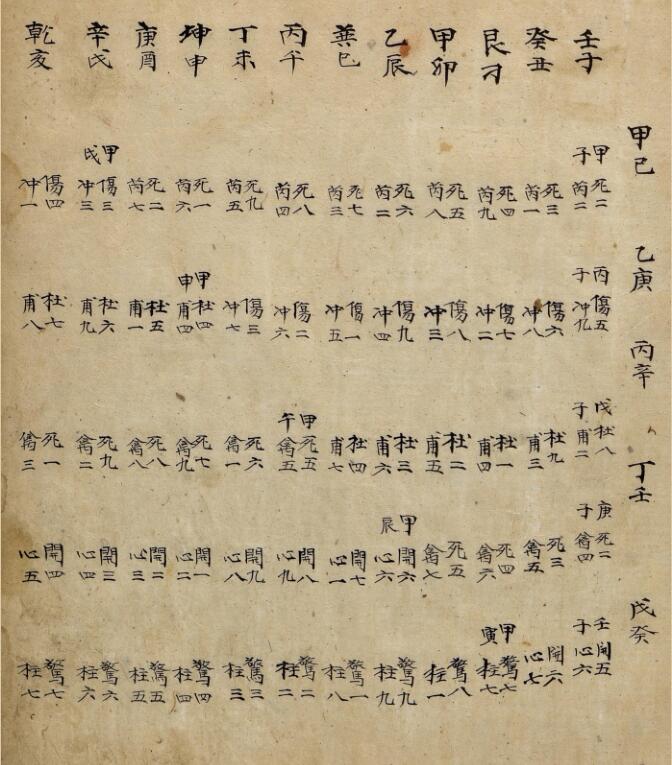 甲己 乙庚 丙辛 丁壬 戊癸
壬子 甲子 死二 芮二 丙子 傷五 冲九 戊子 杜八 甫二 庚子 死二 禽四 壬子 開五 心六
癸丑 死三 芮一 傷六 冲八 杜九 甫三 死三 禽五 開六 心七
艮寅 死四 芮九 傷七 冲二 杜一 甫四 死四 禽六 甲寅 驚七 柱七
甲卯 死五 芮八 傷八 冲三 杜二 甫五 死五 禽七 驚八 柱一
乙辰 死六 芮二 傷九 冲四 杜三 甫六 甲辰 開六 心六 驚九 柱九
巽巳 死七 芮三 傷一 冲五 杜四 甫七 開七 心一 驚一 柱八
丙午 死八 芮四 傷二 冲六 甲午 死五 禽五 開八 心九 驚二 柱二
丁未 死九 芮五 傷三 冲七 死六 禽一 開九 心八 驚三 柱三
坤申 死一 芮六 甲申 杜四 甫四 死七 禽九 開一 心二 驚四 柱四
庚酉 死二 芮七 杜五 甫一 死八 禽八 開二 心三 驚五 柱五
辛戌 甲戌 傷三 冲三 杜六 甫九 死九 禽二 開三 心四 驚六 柱六
乾亥 傷四 冲一 杜七 甫八 死一 禽三 開四 心五 驚七 柱七